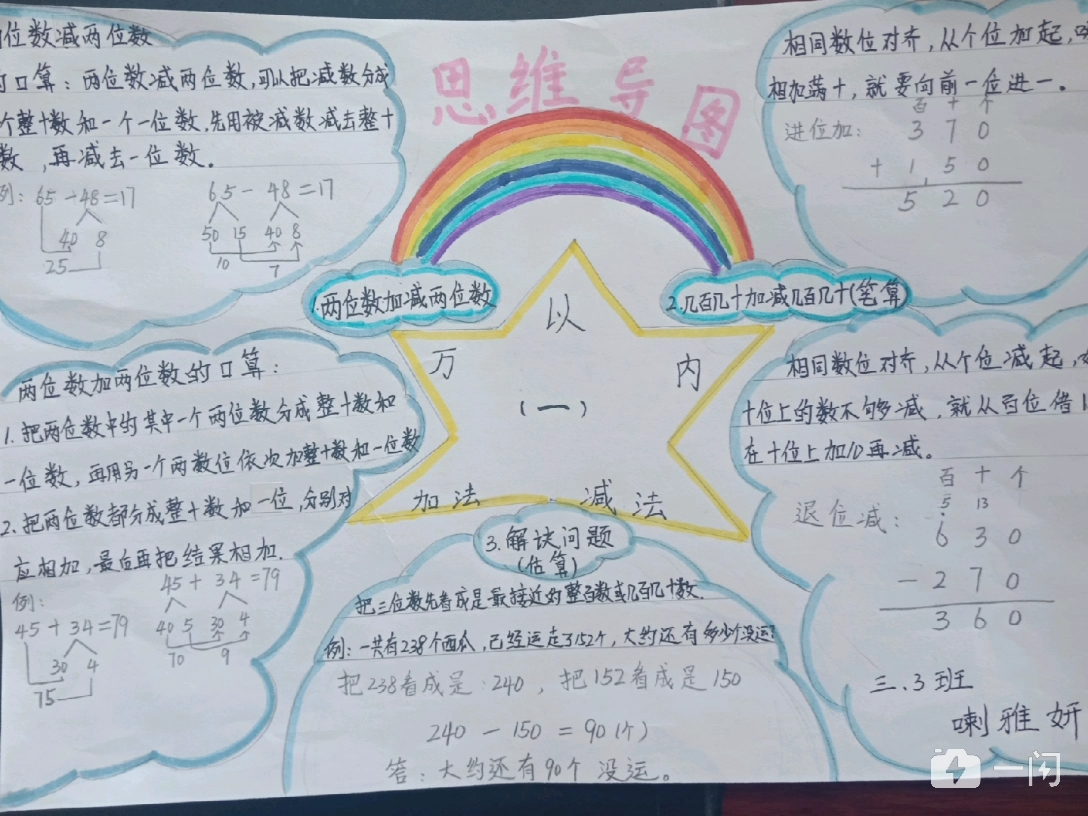 思维导图
位数减两位数
口算：两位数减两位数，可以把减数分成
个整十数和一个一位数，先用被减数减去整十
数，再减去一位数。
例：65-48=17
40 8
25
65-48=17
50 15 40 8
10 7
相同数位对齐，从个位加起，
相加满十，就要向前一位进一。
百十个
进位加：370
+150
520
1.两位数加减两位数
2.几百几十加减几百几十(笔算
万以内
(一)
加法 减法
两位数加两位数的口算：
1.把两位数中的其中一个两位数分成整十数和
一位数，再用另一个两数位依次加整十数和一位数
2.把两位数都分成整十数和一位，分别对
应相加，最后再把结果相加.
例：
45+34=79
30 4
75
45+34=79
40 5 30 4
70 9
相同数位对齐，从个位减起，
十位上的数不够减，就从百位借1
在十位上加10再减。
百十个
5 13
退位减：630
-270
360
3.解决问题
(估算)
把三位数先看成是最接近的整百数或几百几十数.
例：一共有238个西瓜，已经运走了152个，大约还有多少个没运？
把238看成是240，把152看成是150
240-150=90(个)
答：大约还有90个没运。
三.3班
喇雅妍
一闪